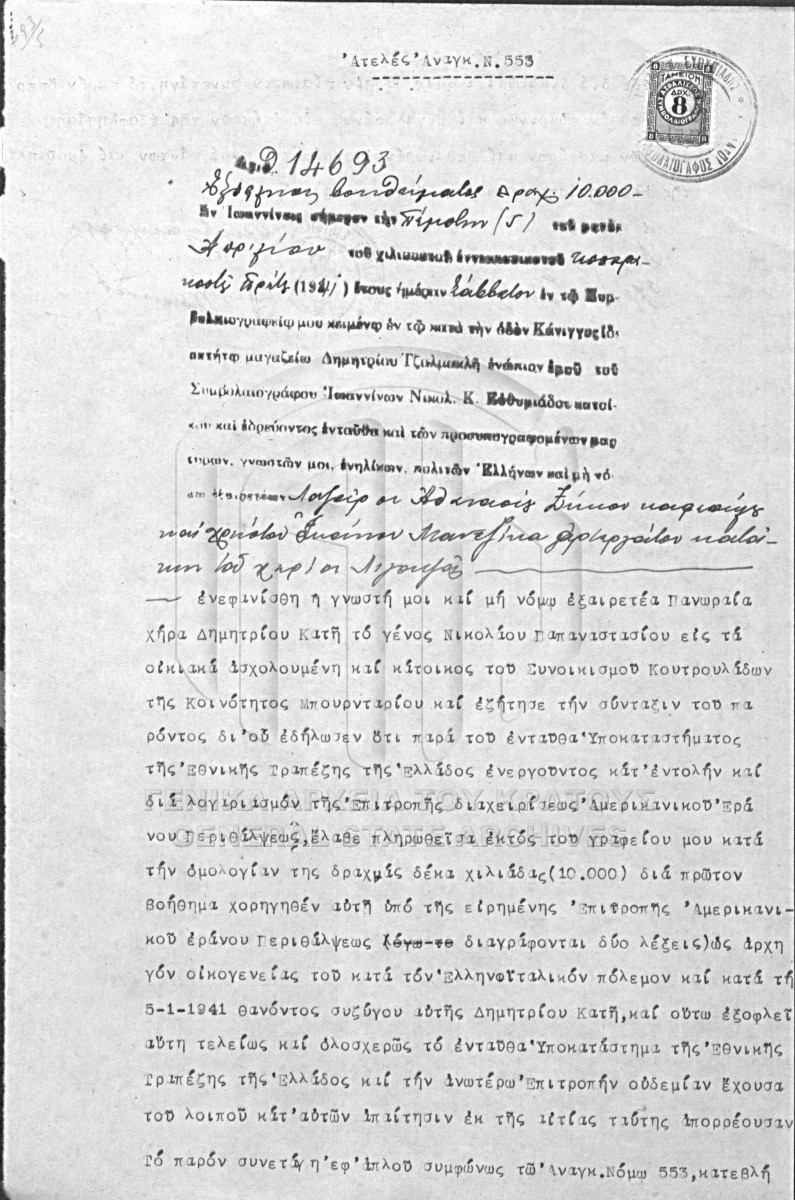 Ἀτελές Ἀναγκ.Ν.553
ΤΑΜΕΙΟΝ
ΔΡΧ.
8
Ἀριθ. 14693
Ἐξόφλησις βοηθήματος Δραχ. 10.000-
Ἐν Ἰωαννίνοις σήμερον τήν Πέμπτην (5) τοῦ μηνός
Ἀπριλίου τοῦ χιλιοστοῦ ἐννεακοσιοστοῦ τεσσαρα-
κοστοῦ πρώτου (1941) ἔτους ἡμέραν Σάββατον ἐν τῷ Συμ-
βολαιογραφείῳ μου κειμένῳ ἐν τῷ κατά τήν ὁδόν Κάνιγγος ἰδι-
οκτήτῳ μαγαζείῳ Δημητρίου Τζιαλμακλῆ ἐνώπιον ἐμοῦ τοῦ
Συμβολαιογράφου Ἰωαννίνων Νικολ. Κ. Εὐθυμιάδου κατοί-
κου καί ἑδρεύοντος ἐνταῦθα καί τῶν προσυπογραφομένων μαρ
τύρων, γνωστῶν μοι, ἐνηλίκων, πολιτῶν Ἑλλήνων καί μή νό-
μῳ ἐξαιρετέων Λαζάρου Ἀθανασίου Ζήκου
καί Χρήστου κατοί-
κων
ἐνεφανίσθη ἡ γνωστή μοι καί μή νόμῳ ἐξαιρετέα Πανωραία
χήρα Δημητρίου Κατῆ τό γένος Νικολάου Παπαναστασίου εἰς τά
οἰκιακά ἀσχολουμένη καί κάτοικος τοῦ Συνοικισμοῦ Κουτρουλάδων
τῆς Κοινότητος Μπουρνταρίου καί ἐζήτησε τήν σύνταξιν τοῦ πα
ρόντος δι'οὗ ἐδήλωσεν ὅτι παρά τοῦ ἐνταῦθα Ὑποκαταστήματος
τῆς Ἐθνικῆς Τραπέζης τῆς Ἑλλάδος ἐνεργοῦντος κατ'ἐντολήν καί
διά λογαριασμόν τῆς Ἐπιτροπῆς διαχειρίσεως Ἀμερικανικοῦ Ἐρά
νου Περιθάλψεως, ἔλαβε πληρωθεῖσα ἐκτός τοῦ γραφείου μου κατά
τήν ὁμολογίαν της δραχμάς δέκα χιλιάδας(10.000) διά πρῶτον
βοήθημα χορηγηθέν αὐτῇ ὑπό τῆς εἰρημένης Ἐπιτροπῆς Ἀμερικανι-
κοῦ ἐράνου Περιθάλψεως (λόγω το διαγράφονται δύο λέξεις)ὡς ἀρχη
γόν οἰκογενείας τοῦ κατά τόν Ἑλληνοϊταλικόν πόλεμον καί κατά τή
5-1-1941 θανόντος συζύγου αὐτῆς Δημητρίου Κατῆ,καί οὕτω ἐξοφλεῖ
αὕτη τελείως καί ὁλοσχερῶς τό ἐνταῦθα Ὑποκατάστημα τῆς Ἐθνικῆς
Τραπέζης τῆς Ἑλλάδος καί τήν ἀνωτέρω Ἐπιτροπήν οὐδεμίαν ἔχουσα
τοῦ λοιποῦ κατ'αὐτῶν ἀπαίτησιν ἐκ τῆς αἰτίας ταύτης ἀπορρέουσαν
Τό παρόν συνετάγη ἐφ'ἁπλοῦ συμφώνως τῶ Ἀναγκ.Νόμω 553,κατεβλή
ΓΕΝΙΚΑ ΑΡΧΕΙΑ ΤΟΥ ΚΡΑΤΟΥΣ
GENERAL STATE ARCHIVES